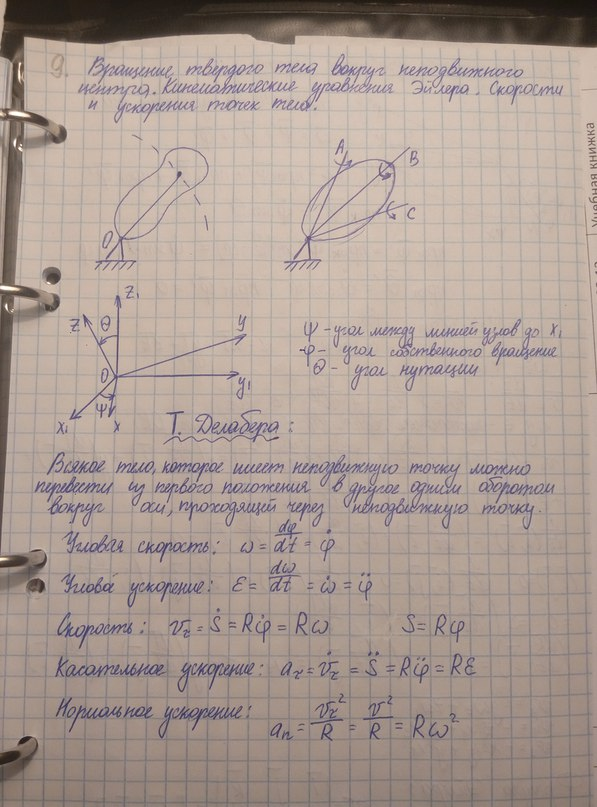 9. Вращение твердого тела вокруг неподвижного
центра. Кинематические уравнения Эйлера. Скорости
и ускорения точек тела.
O
A
B
C
z₁
z
θ
y
O
y₁
ψ
x₁
x
ψ - угол между линией узлов до x₁
φ - угол собственного вращение
θ - угол нутации
Т. Делабера:
Всякое тело, которое имеет неподвижную точку можно
перевести из первого положения в другое одним оборотом
вокруг оси, проходящей через неподвижную точку.
Угловая скорость: ω = dφ/dt = φ̇
Углова ускорение: ε = dω/dt = ω̇ = φ̈
Скорость: v_τ = Ṡ = Rφ̇ = Rω S = Rφ
Касательное ускорение: a_τ = v̇_τ = S̈ = Rφ̈ = Rε
Нормальное ускорение: a_n = v_τ²/R = v²/R = Rω²
Учебная книжка